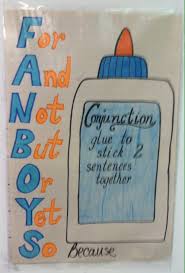 For
And
Not
But
Or
Yet
So
Conjunction
glue to
stick 2
sentences
together
Because